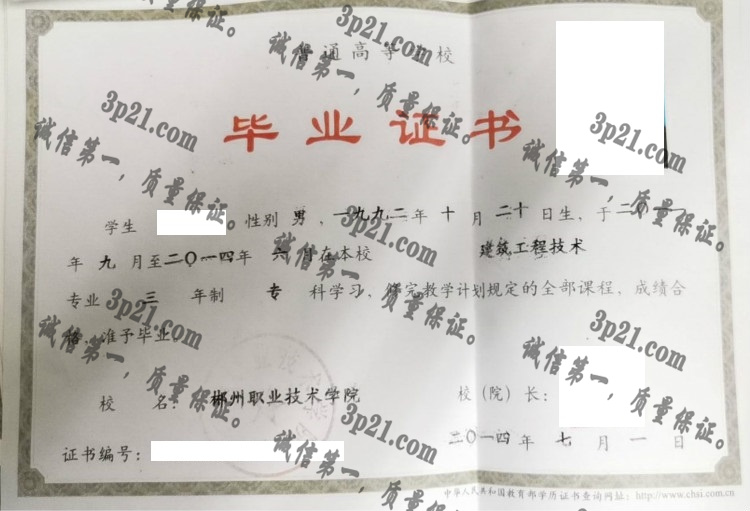 普通高等 校
毕业证书
学生 性别 男 , 一九九二 年 十 月 二十 日生, 于 二〇一一
年 九 月至 二〇一四年 六 月在本校 建筑工程技术
专业 三 年制 专 科学习, 修完教学计划规定的全部课程, 成绩合
格, 准予毕业。
校 名: 郴州职业技术学院 校(院)长:
二〇一四 年 七 月 一 日
证书编号:
中华人民共和国教育部学历证书查询网址: http://www.chsi.com.cn
3p21.com
诚信第一,质量保证。
3p21.com
诚信第一,质量保证。
3p21.com
诚信第一,质量保证。
3p21.com
诚信第一,质量保证。
3p21.com
诚信第一,质量保证。
3p21.com
诚信第一,质量保证。
3p21.com
诚信第一,质量保证。